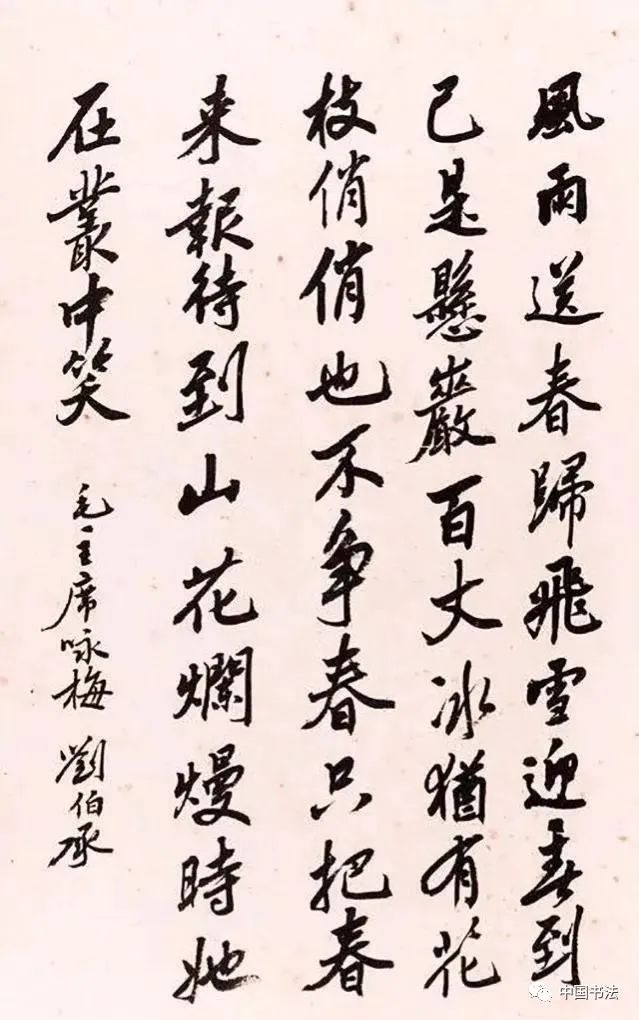 風雨送春歸飛雪迎春到
已是懸巖百丈冰猶有花
枝俏俏也不争春只把春
来報待到山花爛熳時她
在叢中笑
毛主席咏梅 劉伯承
中国书法